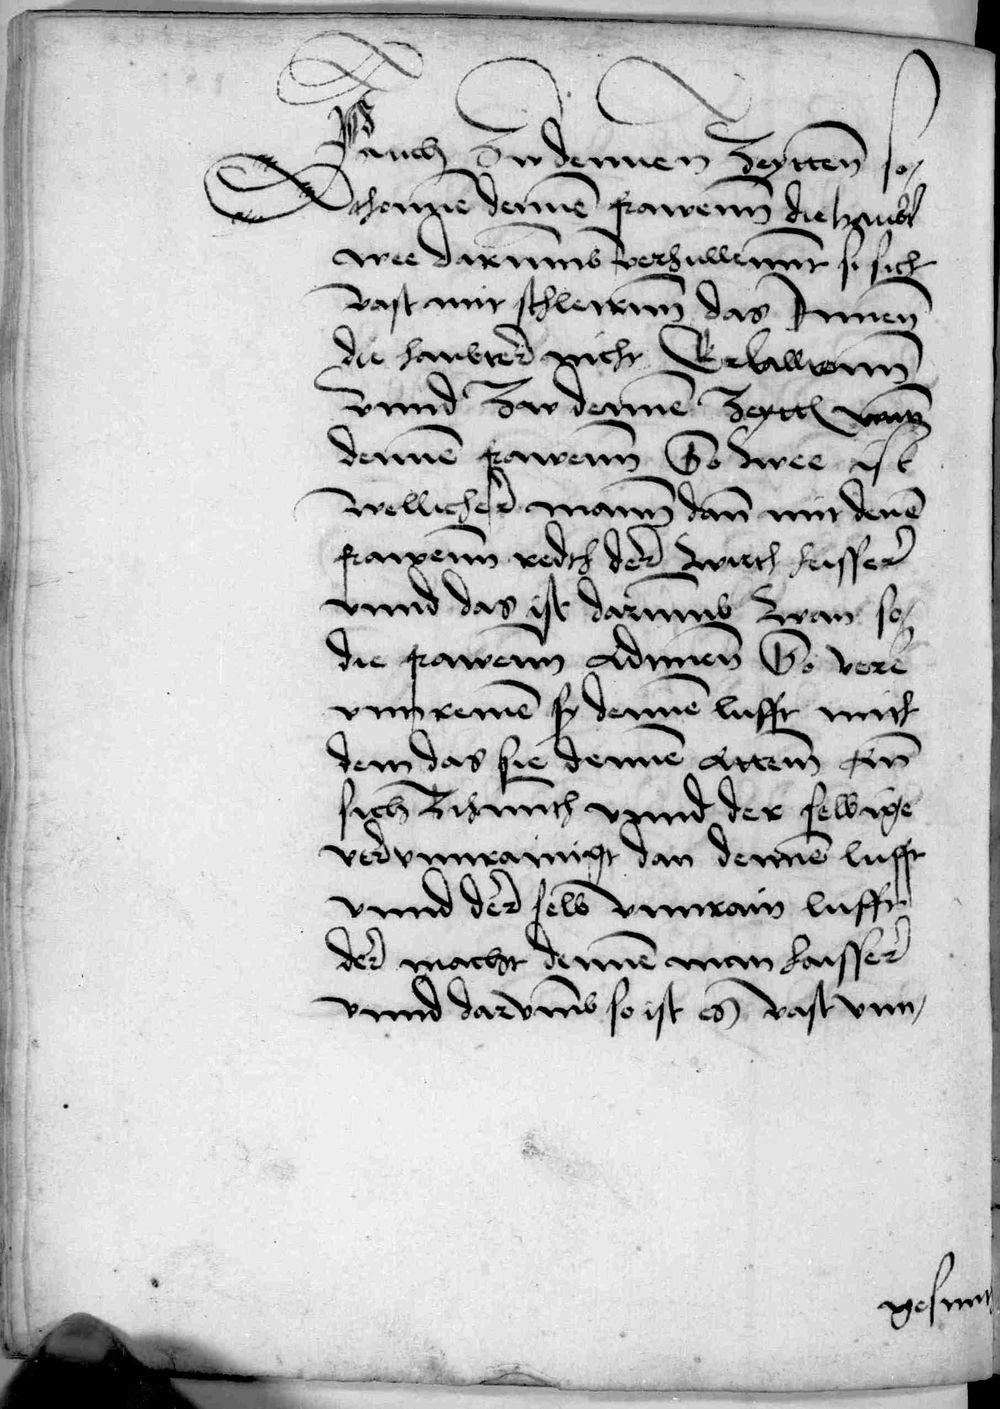 auch Zw dennen Zeytten so
thonne dennē frawenn die haubt
wee darumb verhullennt sy sich
vast mit schleirnn das Innen
die haubter nicht Erkalltenn
vnnd Zw dennē Zeytt wan
dennē frawenn So wee ist
wellicher mann dan mit denē
frawenn redth der wirth heisser
vnnd das ist darumb wan so
die frawenn Admen So ver
vnreinē sy dennē lufft mith
dem das sie dennē attem Inn
sich Zihennth vnnd der selbige
vervnnrainigt dan dennē lufft
vnnd der selb vnnrain lufft
der macht dennē man haisser
vnnd darvmb so ist es vast vnn
gesunt